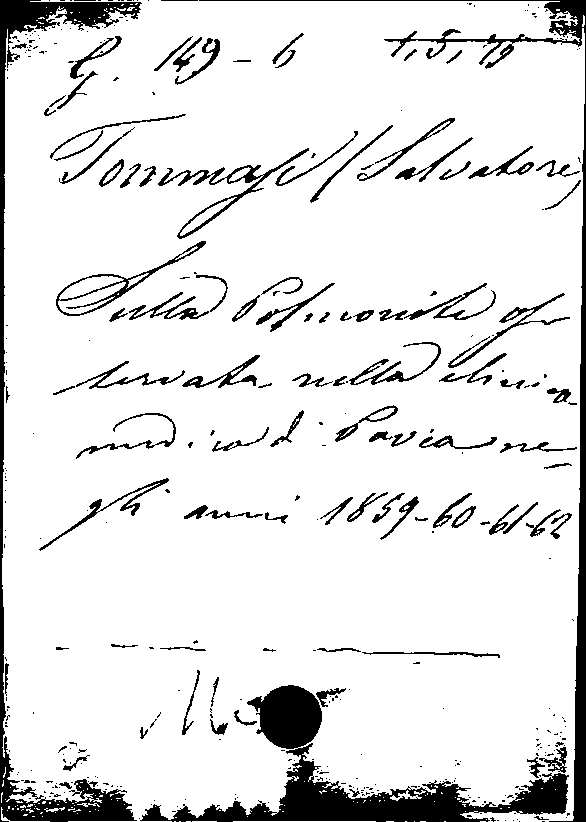 G. 149-6 1, 5, 75
Tommasi (Salvatore)
Sulla Polmonite os-
servata nella clinica
medica di Pavia ne-
gli anni 1859-60-61-62